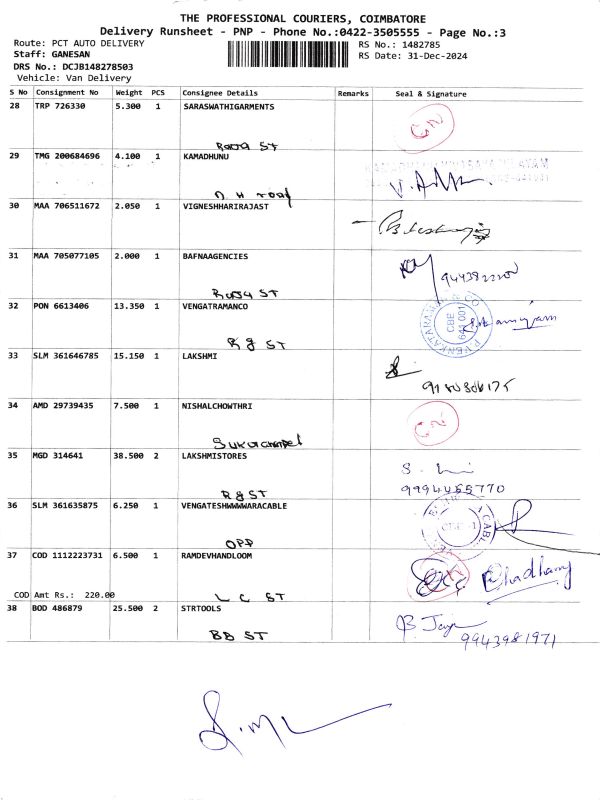 THE PROFESSIONAL COURIERS, COIMBATORE
Delivery Runsheet - PNP - Phone No.:0422-3505555 - Page No.:3
Route: PCT AUTO DELIVERY
RS No.: 1482785
Staff: GANESAN
RS Date: 31-Dec-2024
DRS No.: DCJB148278503
Vehicle: Van Delivery
S No Consignment No Weight PCS Consignee Details Remarks Seal & Signature
28 TRP 726330 5.300 1 SARASWATHIGARMENTS
Raja ST
29 TMG 200684696 4.100 1 KAMADHUNU
D H road
30 MAA 706511672 2.050 1 VIGNESHHARIRAJAST
31 MAA 705077105 2.000 1 BAFNAAGENCIES
Raja ST
32 PON 6613406 13.350 1 VENGATRAMANCO
CBE
641 001
R g ST
33 SLM 361646785 15.150 1 LAKSHMI
34 AMD 29739435 7.500 1 NISHALCHOWTHRI
35 MGD 314641 38.500 2 LAKSHMISTORES
9994455770
R g ST
36 SLM 361635875 6.250 1 VENGATESHWWWARACABLE
OPP
37 COD 1112223731 6.500 1 RAMDEVHANDLOOM
COD Amt Rs.: 220.00
L C ST
38 BOD 486879 25.500 2 STRTOOLS
BB ST
9943981971